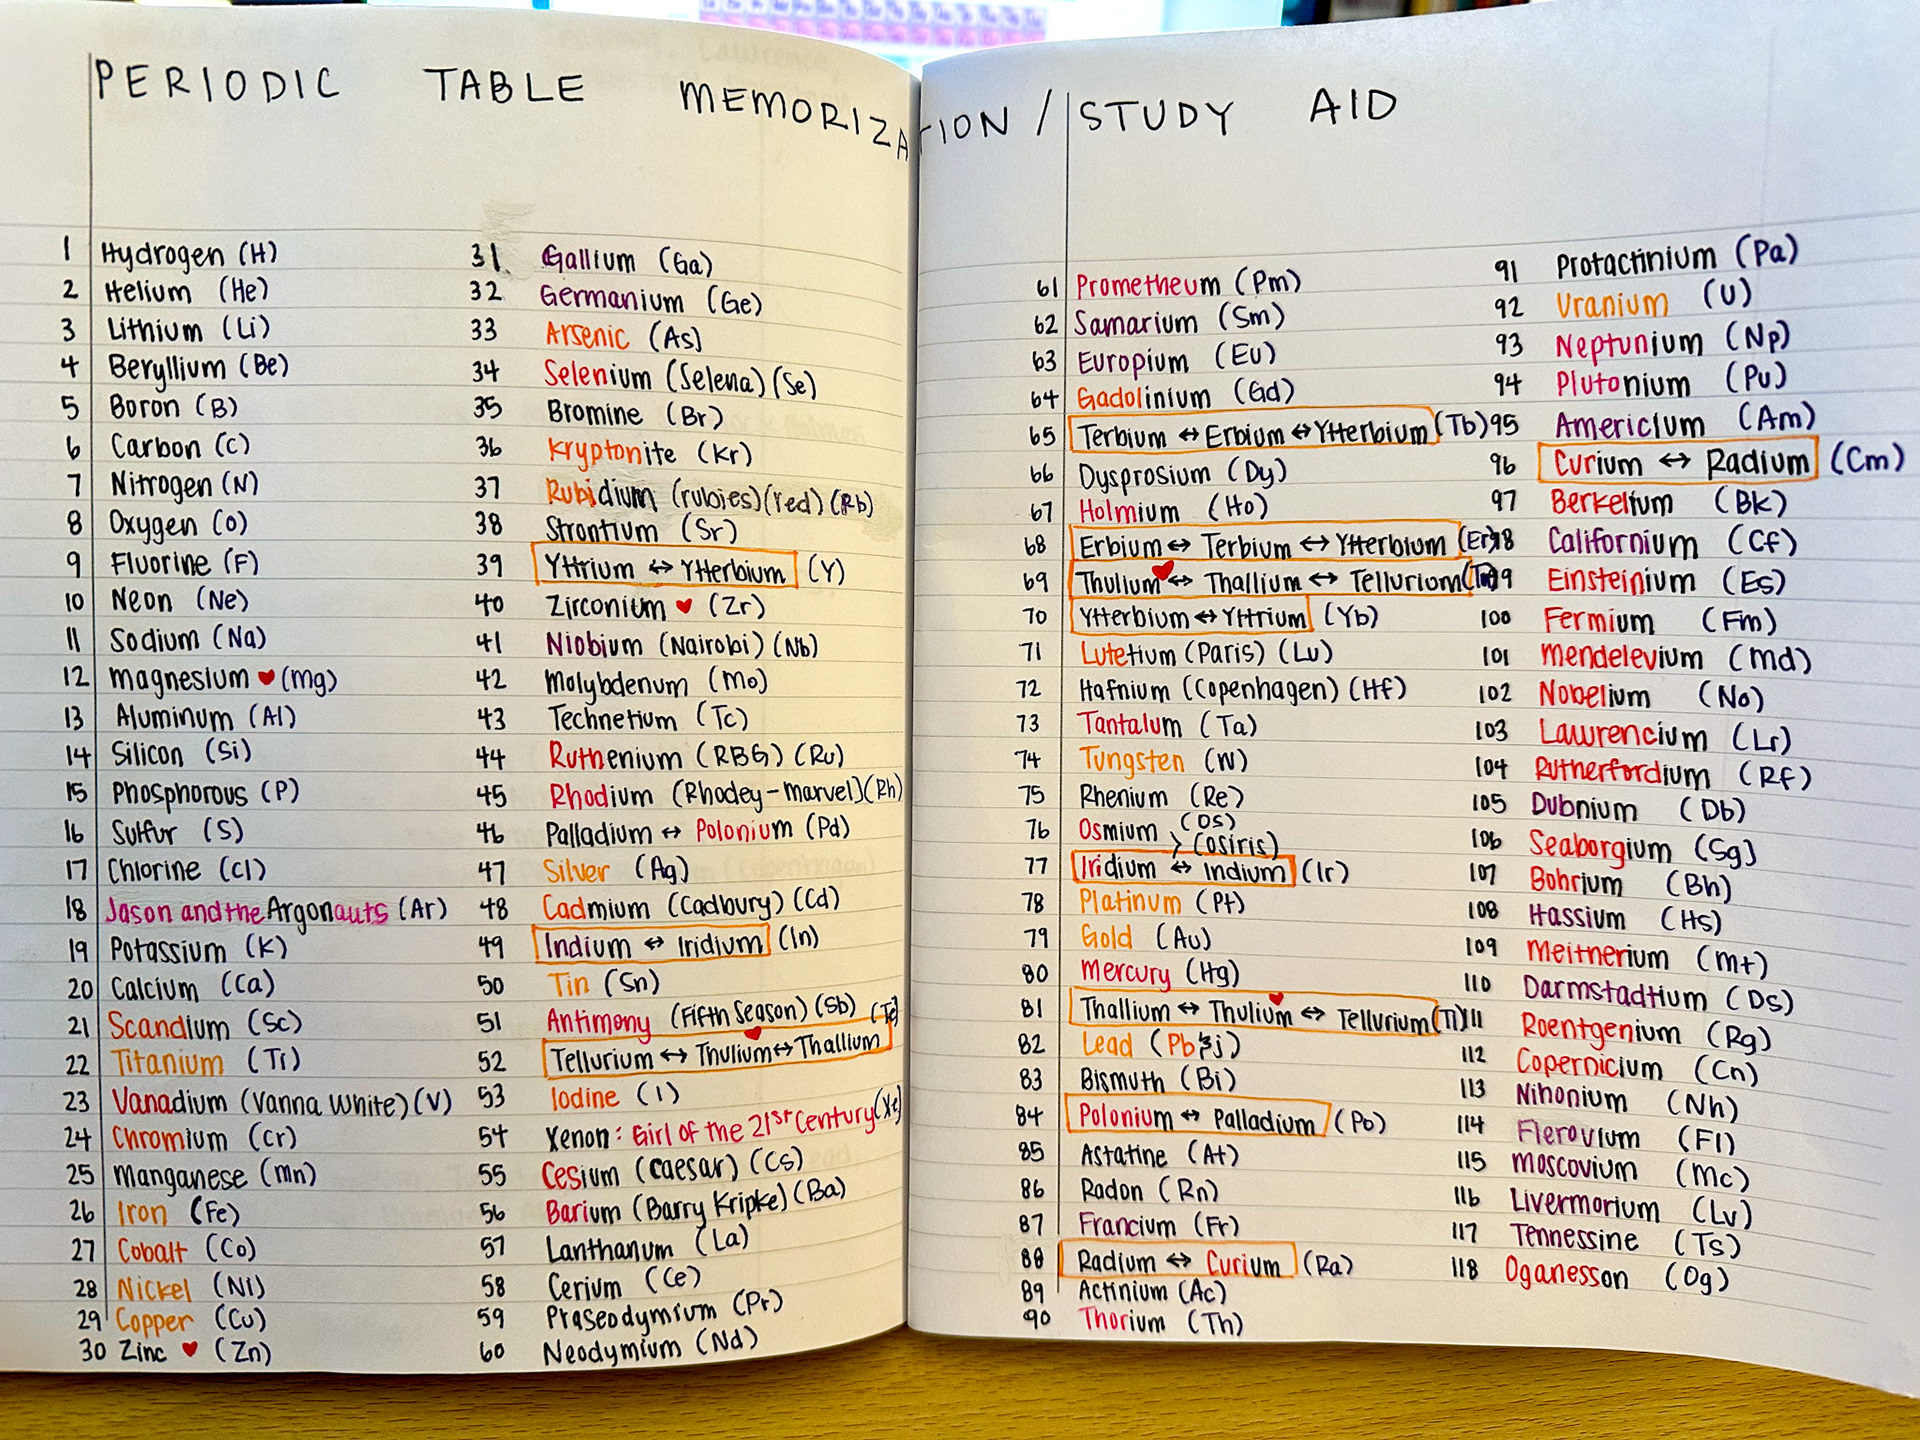 PERIODIC TABLE MEMORIZATION / STUDY AID
1 Hydrogen (H)
2 Helium (He)
3 Lithium (Li)
4 Beryllium (Be)
5 Boron (B)
6 Carbon (C)
7 Nitrogen (N)
8 Oxygen (O)
9 Fluorine (F)
10 Neon (Ne)
11 Sodium (Na)
12 Magnesium ♥ (Mg)
13 Aluminum (Al)
14 Silicon (Si)
15 Phosphorous (P)
16 Sulfur (S)
17 Chlorine (Cl)
18 Jason and the Argonauts (Ar)
19 Potassium (K)
20 Calcium (Ca)
21 Scandium (Sc)
22 Titanium (Ti)
23 Vanadium (Vanna White) (V)
24 Chromium (Cr)
25 Manganese (Mn)
26 Iron (Fe)
27 Cobalt (Co)
28 Nickel (Ni)
29 Copper (Cu)
30 Zinc ♥ (Zn)
31 Gallium (Ga)
32 Germanium (Ge)
33 Arsenic (As)
34 Selenium (Selena) (Se)
35 Bromine (Br)
36 Kryptonite (Kr)
37 Rubidium (rubies) (red) (Rb)
38 Strontium (Sr)
39 Yttrium ↔ Ytterbium (Y)
40 Zirconium ♥ (Zr)
41 Niobium (Nairobi) (Nb)
42 Molybdenum (Mo)
43 Technetium (Tc)
44 Ruthenium (RBG) (Ru)
45 Rhodium (Rhodey-Marvel) (Rh)
46 Palladium ↔ Polonium (Pd)
47 Silver (Ag)
48 Cadmium (Cadbury) (Cd)
49 Indium ↔ Iridium (In)
50 Tin (Sn)
51 Antimony (Fifth Season) (Sb)
52 Tellurium ↔ Thulium ♥ ↔ Thallium (Te)
53 Iodine (I)
54 Xenon: Girl of the 21st Century (Xe)
55 Cesium (caesar) (Cs)
56 Barium (Barry Kripke) (Ba)
57 Lanthanum (La)
58 Cerium (Ce)
59 Praseodymium (Pr)
60 Neodymium (Nd)
61 Prometheum (Pm)
62 Samarium (Sm)
63 Europium (Eu)
64 Gadolinium (Gd)
65 Terbium ↔ Erbium ↔ Ytterbium (Tb)
66 Dysprosium (Dy)
67 Holmium (Ho)
68 Erbium ↔ Terbium ↔ Ytterbium (Er)
69 Thulium ♥ ↔ Thallium ↔ Tellurium
70 Ytterbium ↔ Yttrium (Yb)
71 Lutetium (Paris) (Lu)
72 Hafnium (Copenhagen) (Hf)
73 Tantalum (Ta)
74 Tungsten (W)
75 Rhenium (Re)
76 Osmium (Os)
> (Osiris)
77 Iridium ↔ Indium (Ir)
78 Platinum (Pt)
79 Gold (Au)
80 Mercury (Hg)
81 Thallium ↔ Thulium ♥ ↔ Tellurium (Tl)
82 Lead (Pb&j)
83 Bismuth (Bi)
84 Polonium ↔ Palladium (Po)
85 Astatine (At)
86 Radon (Rn)
87 Francium (Fr)
88 Radium ↔ Curium (Ra)
89 Actinium (Ac)
90 Thorium (Th)
91 Protactinium (Pa)
92 Uranium (U)
93 Neptunium (Np)
94 Plutonium (Pu)
95 Americium (Am)
96 Curium ↔ Radium (Cm)
97 Berkelium (Bk)
98 Californium (Cf)
99 Einsteinium (Es)
100 Fermium (Fm)
101 Mendelevium (Md)
102 Nobelium (No)
103 Lawrencium (Lr)
104 Rutherfordium (Rf)
105 Dubnium (Db)
106 Seaborgium (Sg)
107 Bohrium (Bh)
108 Hassium (Hs)
109 Meitnerium (Mt)
110 Darmstadtium (Ds)
111 Roentgenium (Rg)
112 Copernicium (Cn)
113 Nihonium (Nh)
114 Flerovium (Fl)
115 Moscovium (Mc)
116 Livermorium (Lv)
117 Tennessine (Ts)
118 Oganesson (Og)